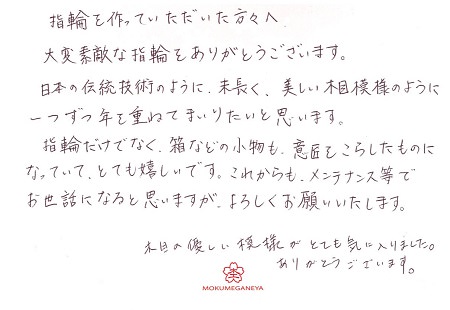 指輪を作っていただいた方々へ
大変素敵な指輪をありがとうございます。
日本の伝統技術のように、末長く、美しい木目模様のように
一つずつ年を重ねてまいりたいと思います。
指輪だけでなく、箱などの小物も、意匠をこらしたものに
なっていて、とても嬉しいです。これからも、メンテナンス等で
お世話になると思いますが、よろしくお願いいたします。
木目の優しい模様がとても気に入りました。
ありがとうございます。
MOKUMEGANEYA